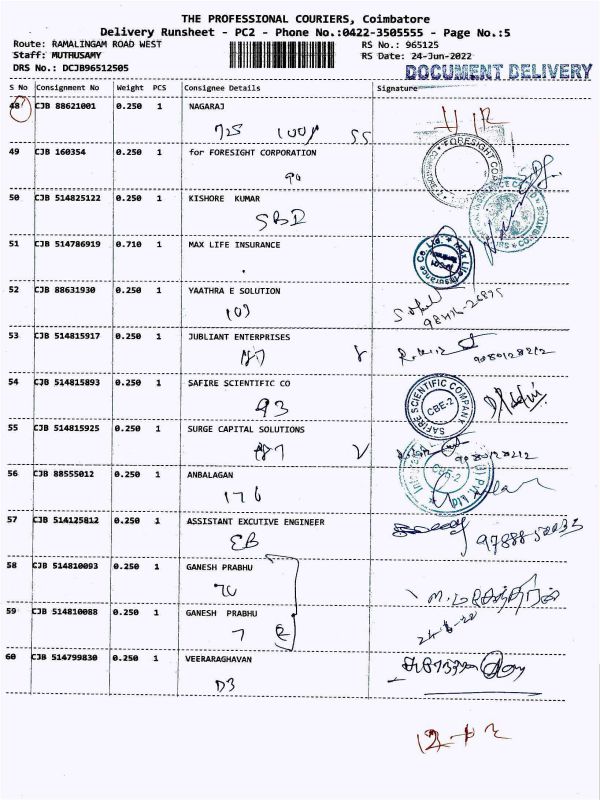 THE PROFESSIONAL COURIERS, Coimbatore
Delivery Runsheet - PC2 - Phone No.:0422-3505555 - Page No.:5
Route: RAMALINGAM ROAD WEST RS No.: 965125
Staff: MUTHUSAMY RS Date: 24-Jun-2022
DRS No.: DCJB96512505 DOCUMENT DELIVERY
S No Consignment No Weight PCS Consignee Details Signature
48 CJB 88621001 0.250 1 NAGARAJ
725 SS
49 CJB 160354 0.250 1 for FORESIGHT CORPORATION
FORESIGHT
50 CJB 514825122 0.250 1 KISHORE KUMAR
SBI
51 CJB 514786919 0.710 1 MAX LIFE INSURANCE
Max Life Insurance Co. Ltd.
52 CJB 88631930 0.250 1 YAATHRA E SOLUTION
109
53 CJB 514815917 0.250 1 JUBLIANT ENTERPRISES
9080128212
54 CJB 514815893 0.250 1 SAFIRE SCIENTIFIC CO
93
SAFIRE SCIENTIFIC COMPANY
CBE-2
55 CJB 514815925 0.250 1 SURGE CAPITAL SOLUTIONS
9080128212
CBE-2
56 CJB 88555012 0.250 1 ANBALAGAN
176
57 CJB 514125812 0.250 1 ASSISTANT EXCUTIVE ENGINEER
EB
58 CJB 514810093 0.250 1 GANESH PRABHU
59 CJB 514810088 0.250 1 GANESH PRABHU
7
60 CJB 514799830 0.250 1 VEERARAGHAVAN
D3